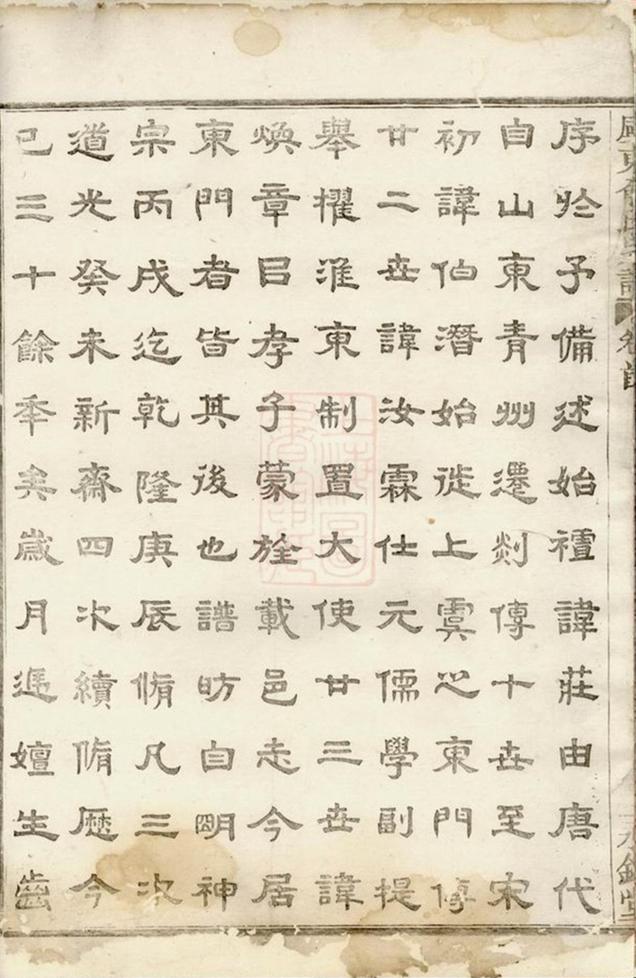 序於予備述始禮諱莊由唐代
自山東青州遷剡傳十世至宋
初諱伯潛始徙上虞之東門傳
廿二世諱汝霖仕元儒學副提
舉擢淮東制置大使廿三世諱
煥章㠯孝子蒙旌載邑志今居
東門者皆其後也譜昉自明神
宗丙戌迄乾隆庚辰脩凡三次
道光癸未新齋四次續脩歷今
已三十餘年矣歲月遞嬗生齒
卷首